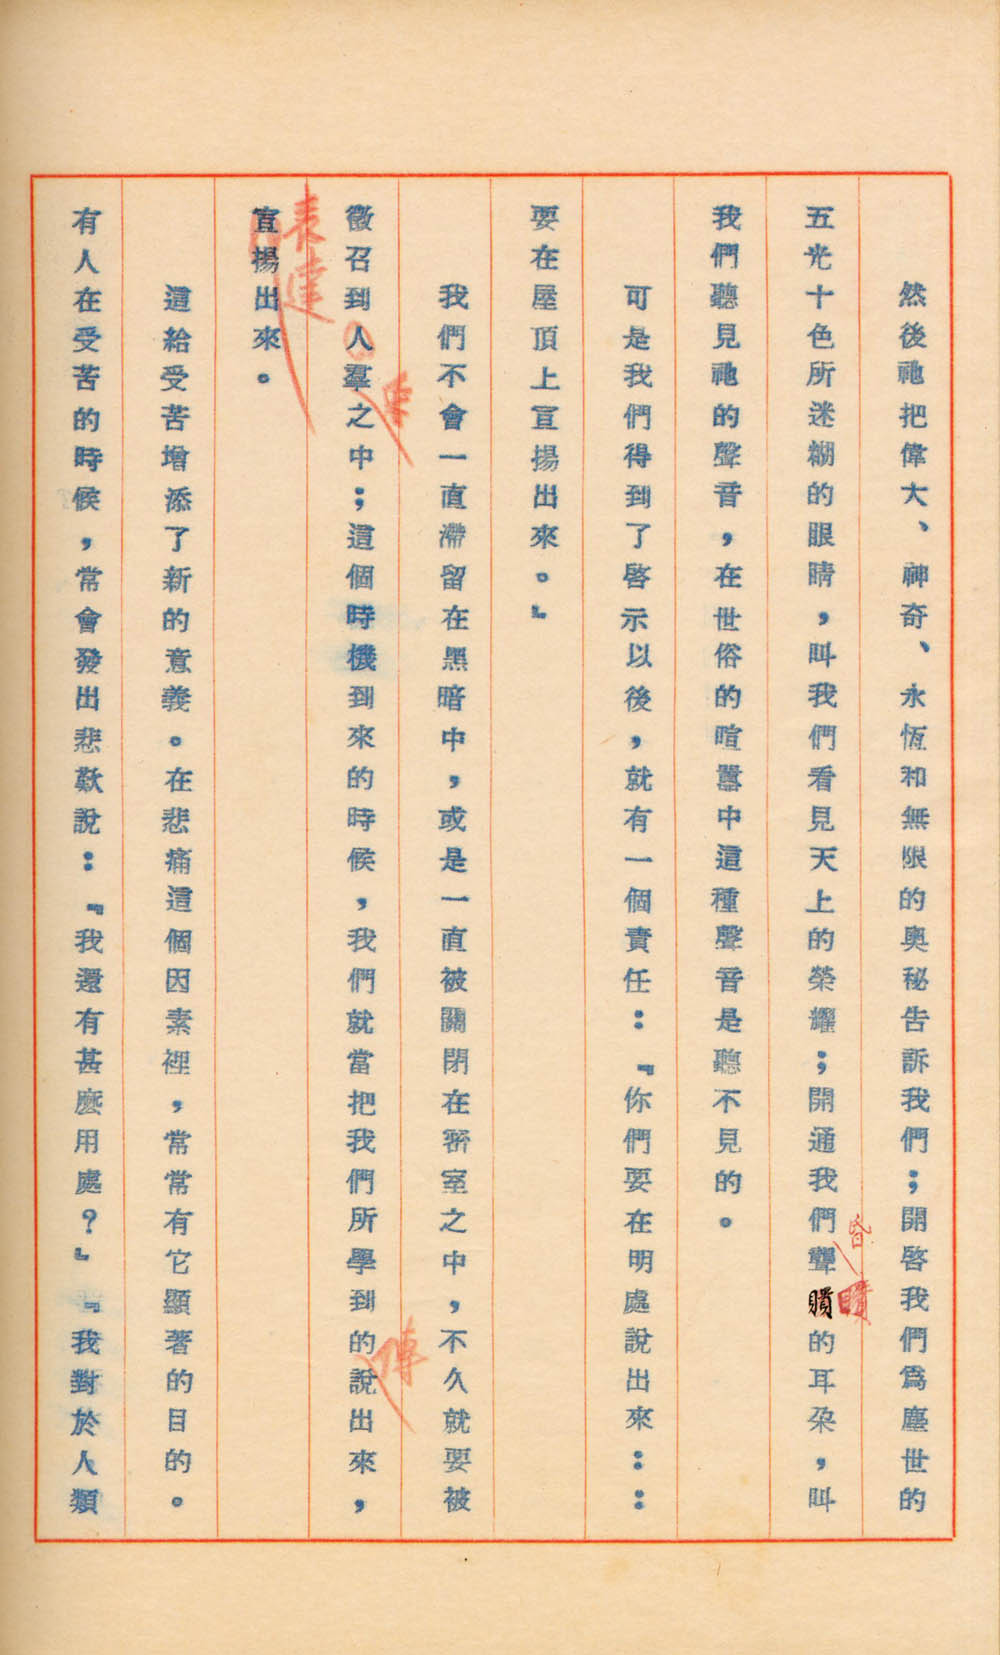 然後祂把偉大、神奇、永恆和無限的奧秘告訴我們；開啓我們爲塵世的
五光十色所迷糊的眼睛，叫我們看見天上的榮耀；開通我們聾聵的耳朶，叫
昏聵
我們聽見祂的聲音，在世俗的喧囂中這種聲音是聽不見的。
可是我們得到了啓示以後，就有一個責任：『你們要在明處說出來：：
要在屋頂上宣揚出來。』
我們不會一直滯留在黑暗中，或是一直被關閉在密室之中，不久就要被
徵召到人羣之中；這個時機到來的時候，我們就當把我們所學到的說出來，
傳
宣揚出來。
表達
這給受苦增添了新的意義。在悲痛這個因素裡，常常有它顯著的目的。
有人在受苦的時候，常會發出悲歎說：『我還有甚麽用處？』『我對於人類